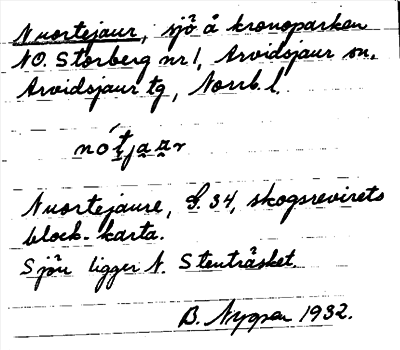 Nuortejaur, sjö å kronoparken
NO. Storberg nr 1, Arvidsjaur sn,
Arvidsjaur tg, Norrb. l.
nótja͕a͕r
Nuortejaure, S. 34, skogsrevirets
block-karta.
Sjön ligger N. Stenträsket.
B. Nygren 1932.